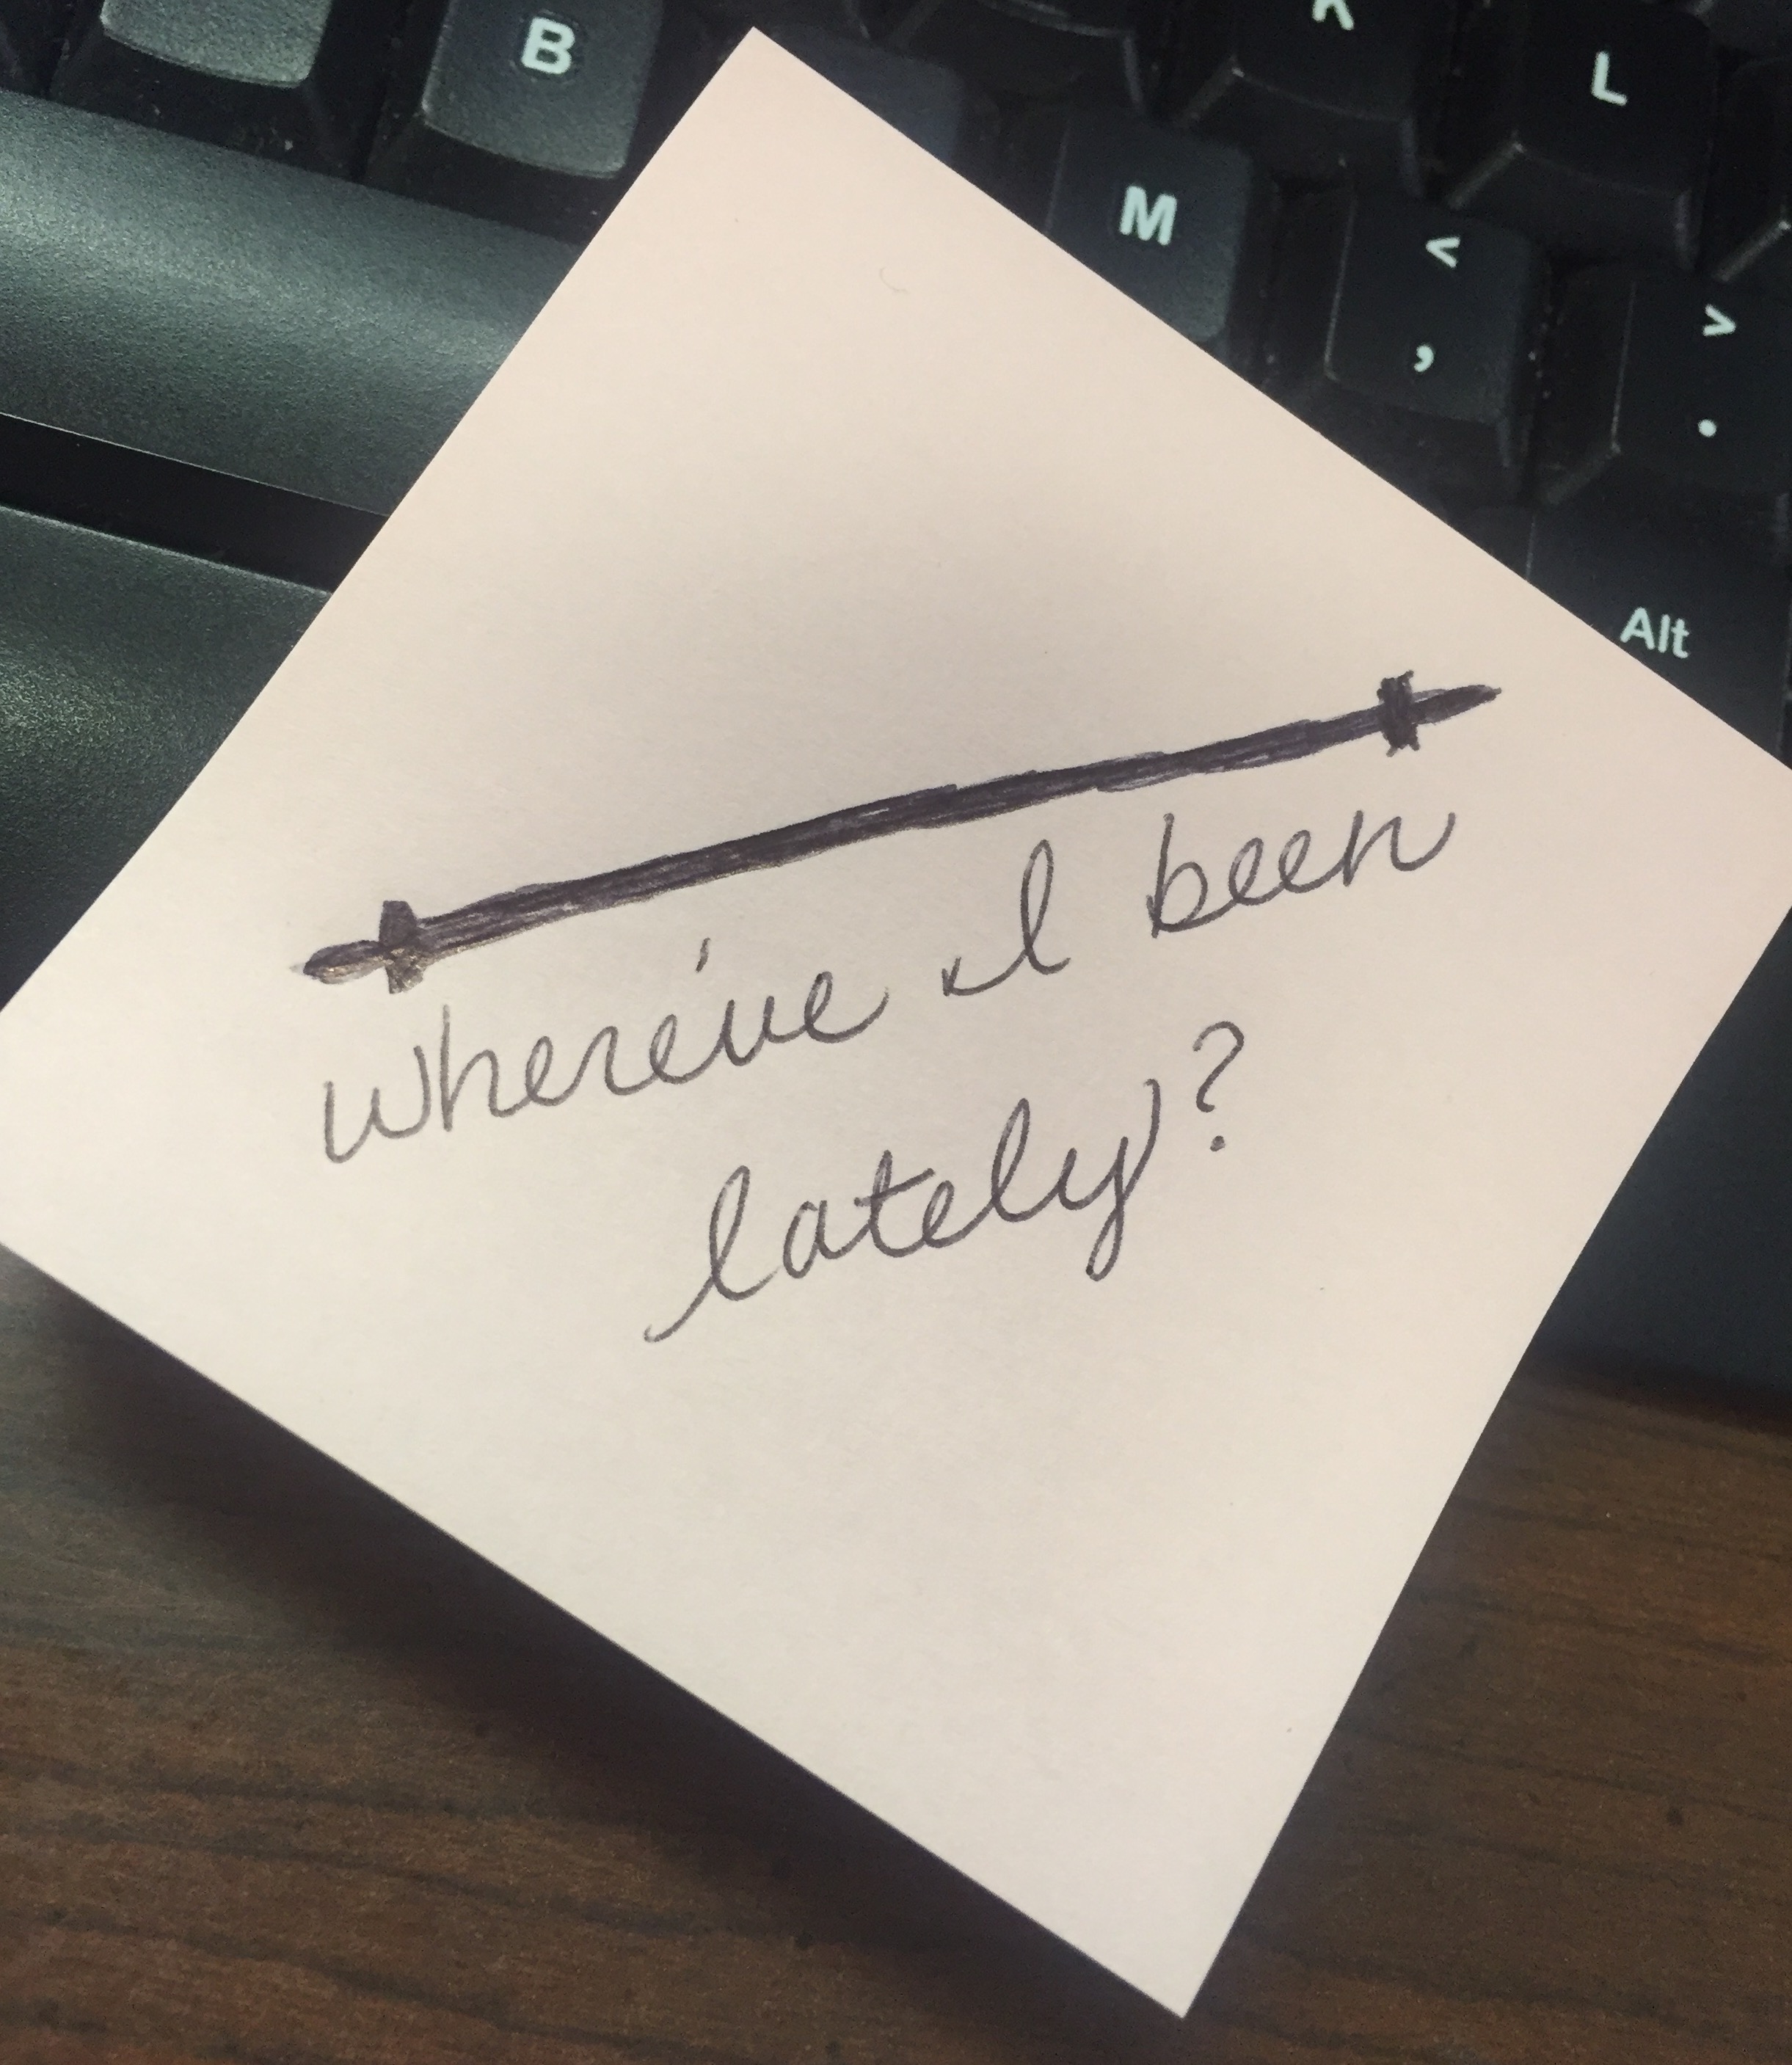 B
K
L
M
<
,
>
.
Alt
where've I been
lately?